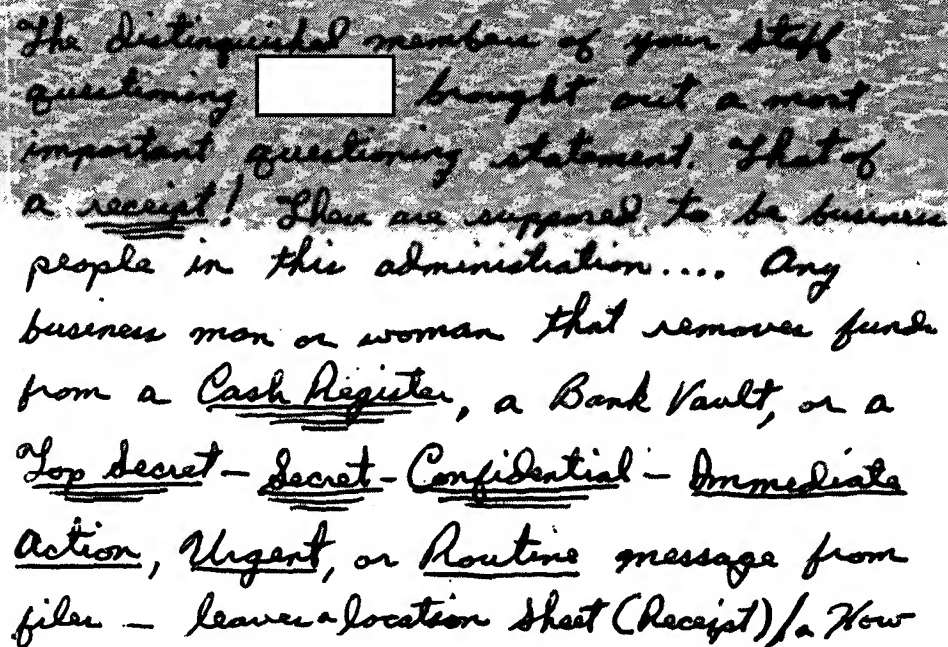 The distinguished members of your staff
questioning brought out a most
important questioning statement. That of
a receipt! There are supposed to be business
people in this administration.... Any
business man or woman that removes funds
from a Cash Register, a Bank Vault, or a
Top Secret - Secret - Confidential - Immediate
Action, Urgent, or Routine message from
files - leaves a location Sheet (Receipt)/a How